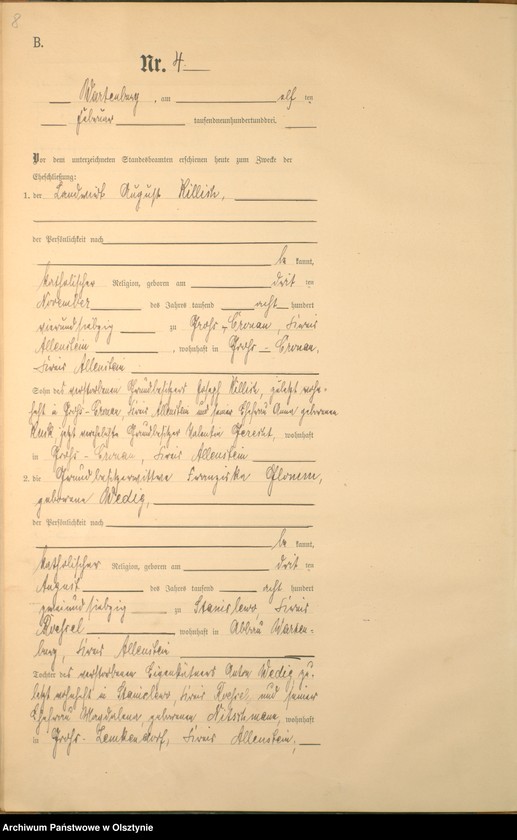 8
B.
Nr. 4
Wartenburg, am elf ten
Februar tausendneunhundertunddrei.
Vor dem unterzeichneten Standesbeamten erschienen heute zum Zwecke der
Eheschließung:
1. der Landwirt August Killisch,
der Persönlichkeit nach
be kannt,
katholischer Religion, geboren am drit ten
November des Jahres tausend acht hundert
vierundsiebzig zu Groß-Cronau, Kreis
Allenstein, wohnhaft in Groß-Cronau,
Kreis Allenstein
Sohn des verstorbenen Grundbesitzers Joseph Killisch, zuletzt wohn-
haft in Groß-Cronau, Kreis Allenstein und seiner Ehefrau Anna geborenen
jetzt verehelichte Grundbesitzer Valentin wohnhaft
in Groß-Cronau, Kreis Allenstein
2. die Grundbesitzerwittwe Franziska
geborene Wedig,
der Persönlichkeit nach
be kannt,
katholischer Religion, geboren am drit ten
August des Jahres tausend acht hundert
zweiundsiebzig zu Stanislewo, Kreis
Roessel wohnhaft in Abbau Warten-
burg, Kreis Allenstein
Tochter des verstorbenen Eigenkäthners Anton Wedig zu-
letzt wohnhaft in Stanislewo, Kreis Roessel, und seiner
Ehefrau Magdalena, geborenen wohnhaft
in Groß-Lemkendorf, Kreis Allenstein,
Archiwum Państwowe w Olsztynie